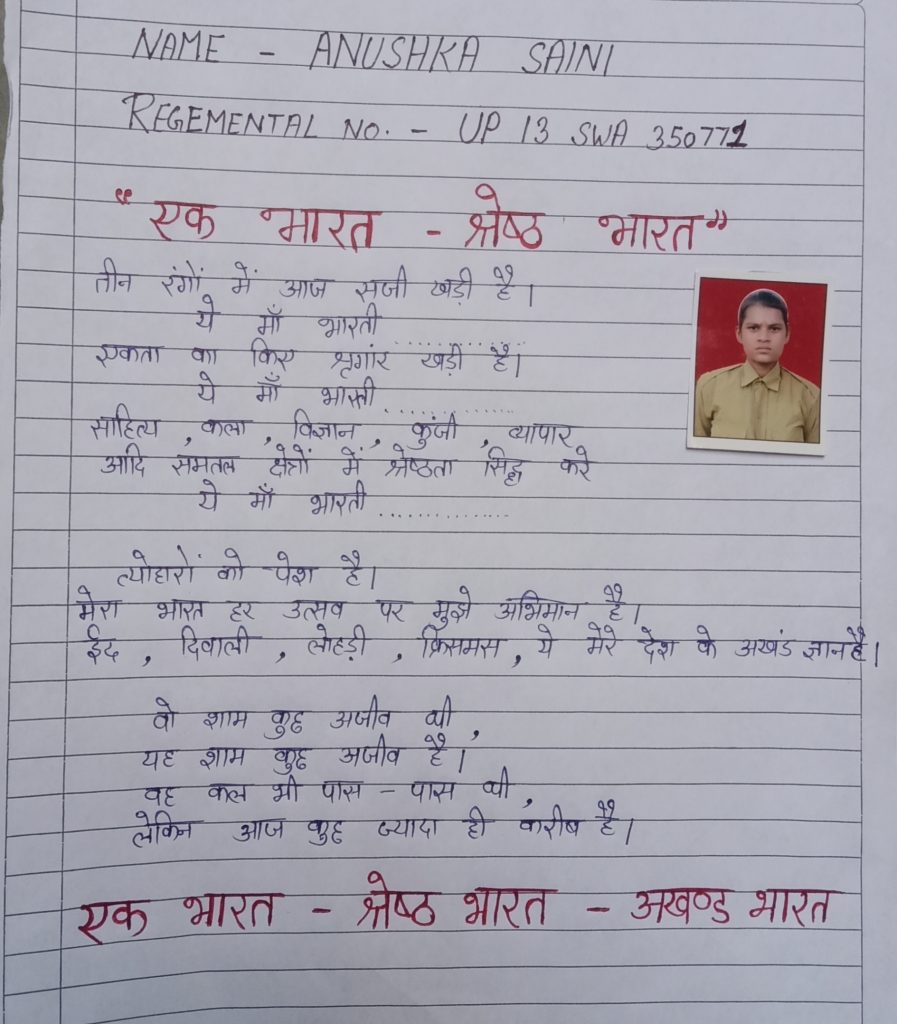 NAME - ANUSHKA SAINI
REGEMENTAL NO. - UP 13 SWA 350771
“एक भारत - श्रेष्ठ भारत”
तीन रंगों में आज सजी खड़ी है।
ये माँ भारती ............
एकता का किए श्रृगांर खड़ी है।
ये माँ भारती ............
साहित्य , कला , विज्ञान , कुंजी , व्यापार
आदि समतल क्षेत्रों में श्रेष्ठता सिद्ध करे
ये माँ भारती ............
त्योहारों को पेश है।
मेरा भारत हर उत्सव पर मुझे अभिमान है।
ईद , दिवाली , लोहड़ी , क्रिसमस , ये मेरे देश के अखंड ज्ञान है।
वो शाम कुछ अजीव थी ,
यह शाम कुछ अजीव है।
वह कल भी पास - पास थी ,
लेकिन आज कुछ ज्यादा ही करीब है।
एक भारत - श्रेष्ठ भारत - अखण्ड भारत